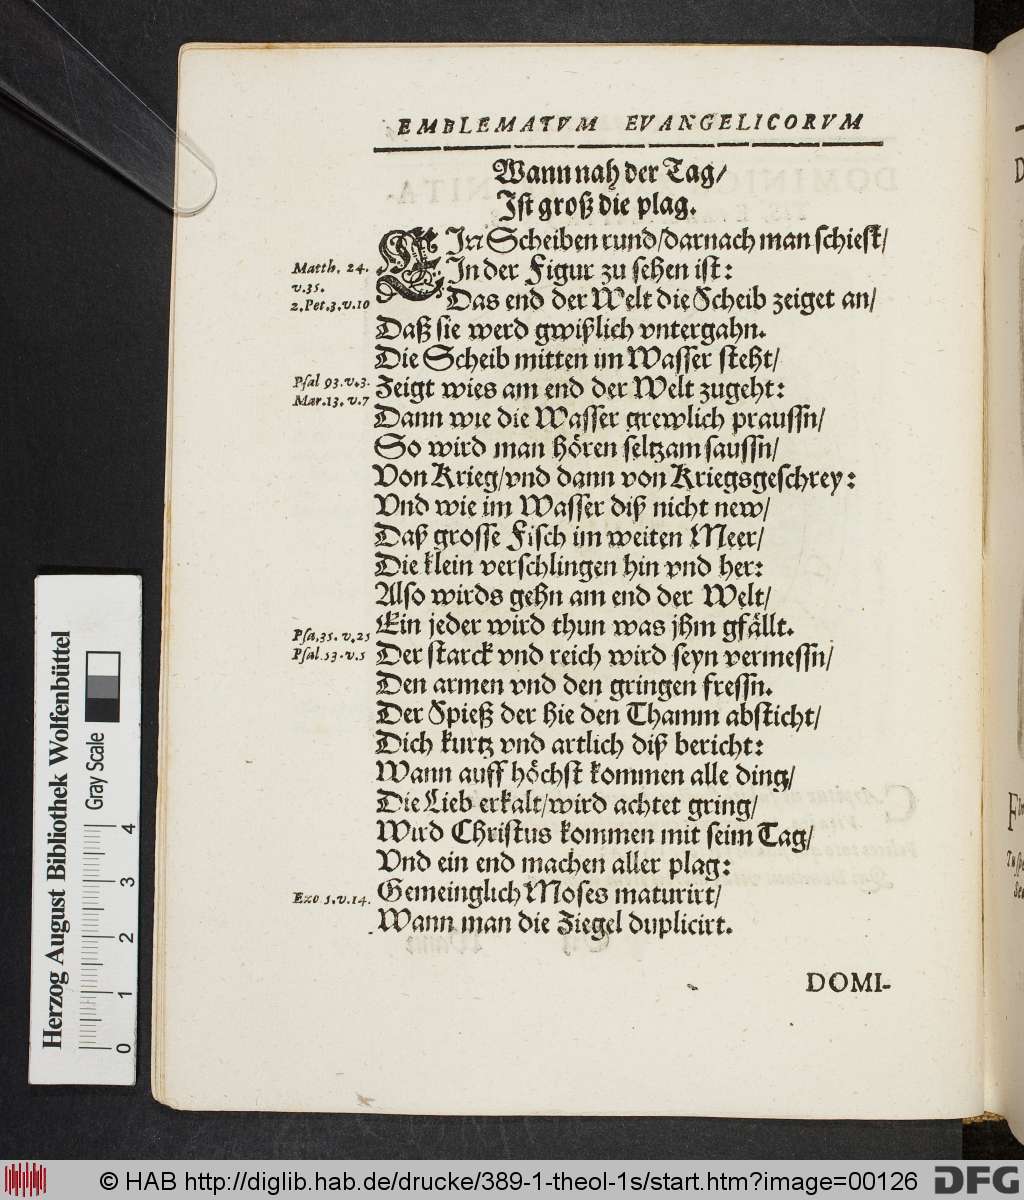 EMBLEMATVM EVANGELICORVM
Wann nah der Tag/
Ist groß die plag.
EIn Scheiben rund/darnach man schiest/
In der Figur zu sehen ist:
Matth. 24.
v.35.
2.Pet.3.v.10
Das end der Welt die Scheib zeiget an/
Daß sie werd gwißlich vntergahn.
Die Scheib mitten im Wasser steht/
Psal 93.v.3.
Mar.13.v.7
Zeigt wies am end der Welt zugeht:
Dann wie die Wasser grewlich praussn/
So wird man hören seltzam saussn/
Von Krieg/vnd dann von Kriegsgeschrey:
Vnd wie im Wasser diß nicht new/
Daß grosse Fisch im weiten Meer/
Die klein verschlingen hin vnd her:
Also wirds gehn am end der Welt/
Ein jeder wird thun was jhm gfällt.
Psa.35.v.25
Psal.53.v.5
Der starck vnd reich wird seyn vermessn/
Den armen vnd den gringen fressn.
Der Spieß der hie den Thamm absticht/
Dich kurtz vnd artlich diß bericht:
Wann auff höchst kommen alle ding/
Die Lieb erkalt/wird achtet gring/
Wird Christus kommen mit seim Tag/
Vnd ein end machen aller plag:
Exo 5.v.14.
Gemeinglich Moses maturirt/
Wann man die Ziegel duplicirt.
DOMI-
Herzog August Bibliothek Wolfenbüttel
Gray Scale
0 1 2 3 4
© HAB http://diglib.hab.de/drucke/389-1-theol-1s/start.htm?image=00126
DFG